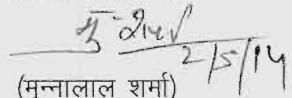 2/5/14
(मुन्नालाल शर्मा)